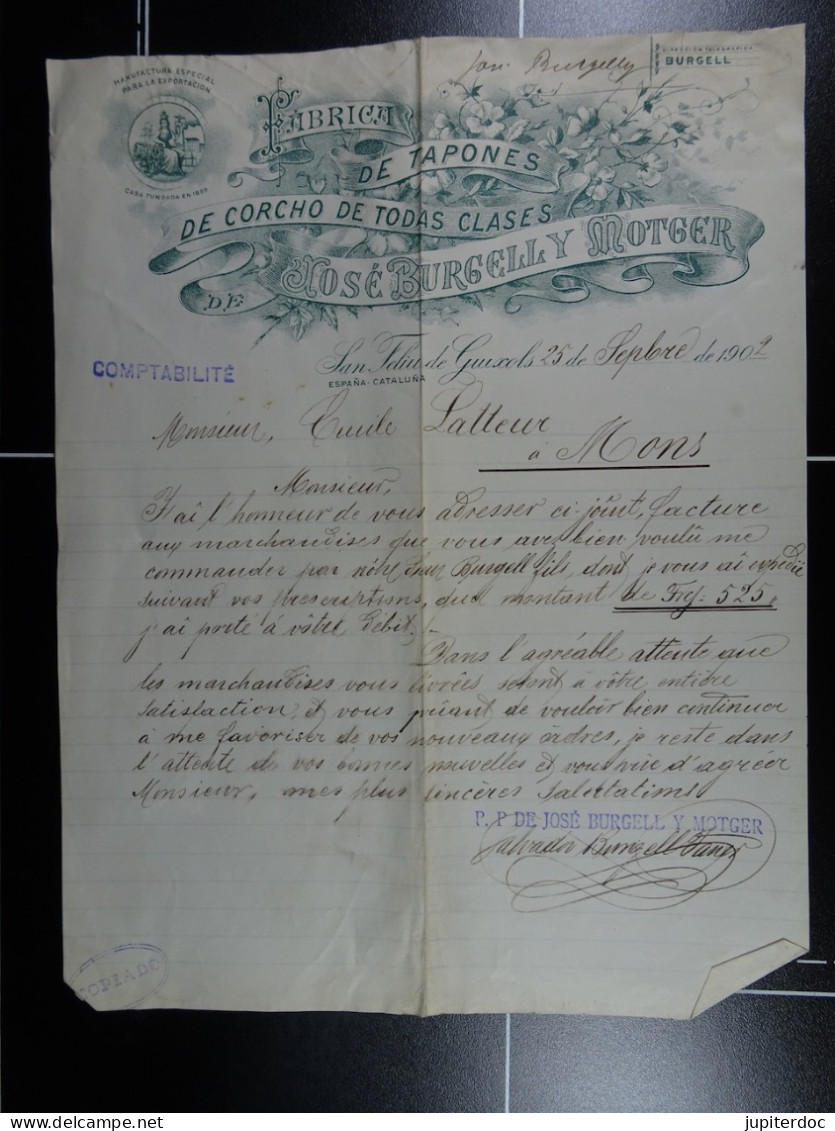 José Burgell y
DIRECCIÓN TELEGRÁFICA
BURGELL
MANUFACTURA ESPECIAL
PARA LA EXPORTACION
CASA FUNDADA EN
FABRICA
DE TAPONES
DE CORCHO DE TODAS CLASES
DE JOSÉ BURGELL Y MOTGER
San Feliu de Guixols 25 de Sepbre de 1902
ESPAÑA-CATALUÑA
COMPTABILITÉ
Monsieur, Emile Latteur
à Mons
Monsieur,
J'ai l'honneur de vous adresser ci-joint, facture
aux marchandises que vous avez bien voulu me
commander par nôtre Burgell fils, dont je vous ai expédié
suivant vos prescriptions, du montant de Frs: 525,
j'ai porté à vôtre Débit.
Dans l'agréable attente que
les marchandises vous livrées seront à vôtre entière
satisfaction, et vous priant de vouloir bien continuer
à me favoriser de vos nouveaux ordres, je reste dans
l'attente de vos bonnes nouvelles et vous prie d'agréer
Monsieur, mes plus sincères salutations
P. P DE JOSÉ BURGELL Y MOTGER
Salvador Burgell
COPIADO
jupiterdoc